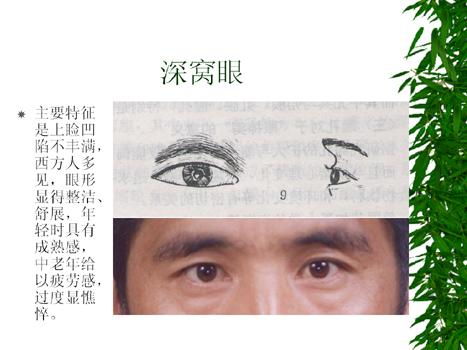 深窝眼
主要特征
是上睑凹
陷不丰满,
西方人多
见，眼形
显得整洁、
舒展，年
轻时具有
成熟感，
中老年给
以疲劳感，
过度显憔
悴。
9